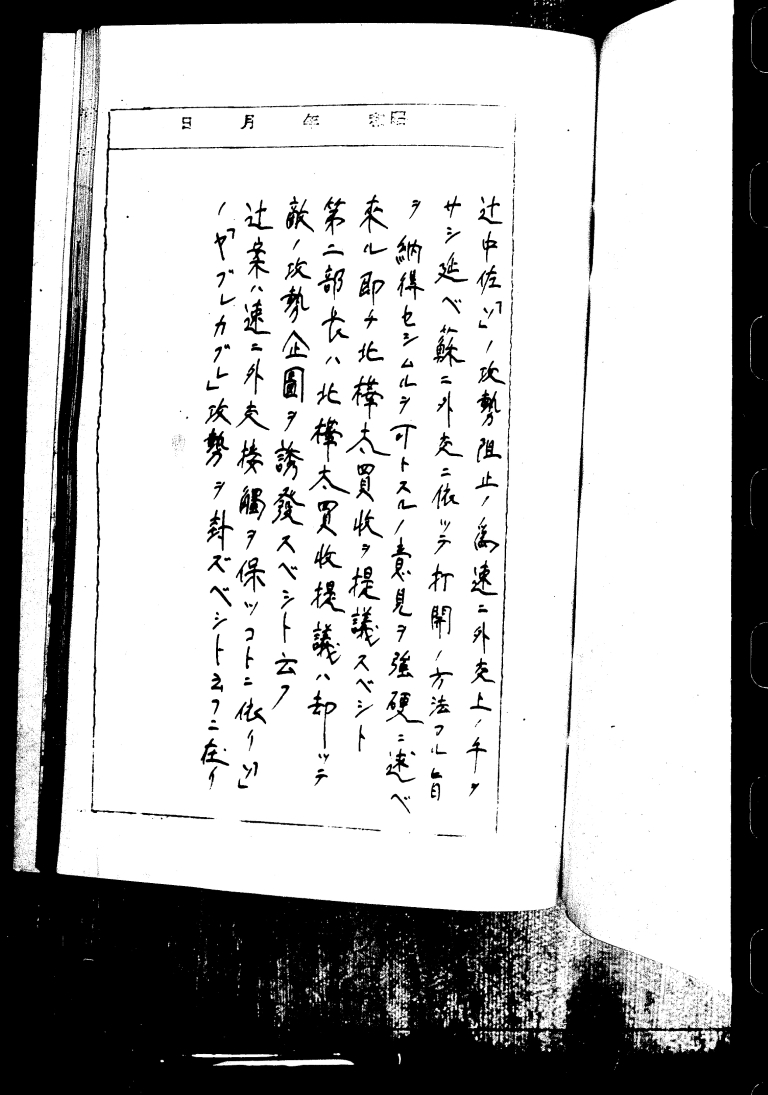 昭和 年 月 日
辻中佐「ソ」ノ攻勢阻止ノ為速ニ外交上ノ手ヲ
サシ延ベ蘇ニ外交ニ依ッテ打開ノ方法アル旨
ヲ納得セシムルヲ可トスルノ意見ヲ強硬ニ述ベ
來ル即チ北樺太買收ヲ提議スベシト
第二部長ハ北樺太買收提議ハ却ッテ
敵ノ攻勢企圖ヲ誘發スベシト云フ
辻案ハ速ニ外交接觸ヲ保ツコトニ依リ「ソ」
ノ「ヤブレカブレ」攻勢ヲ封ズベシト云フニ在リ